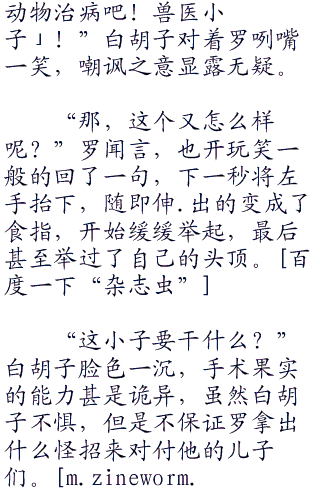 动物治病吧！兽医小
子」！”白胡子对着罗咧嘴
一笑，嘲讽之意显露无疑。
“那，这个又怎么样
呢？”罗闻言，也开玩笑一
般的回了一句，下一秒将左
手抬下，随即伸.出的变成了
食指，开始缓缓举起，最后
甚至举过了自己的头顶。[百
度一下“杂志虫”]
“这小子要干什么？”
白胡子脸色一沉，手术果实
的能力甚是诡异，虽然白胡
子不惧，但是不保证罗拿出
什么怪招来对付他的儿子
们。[m.zineworm.